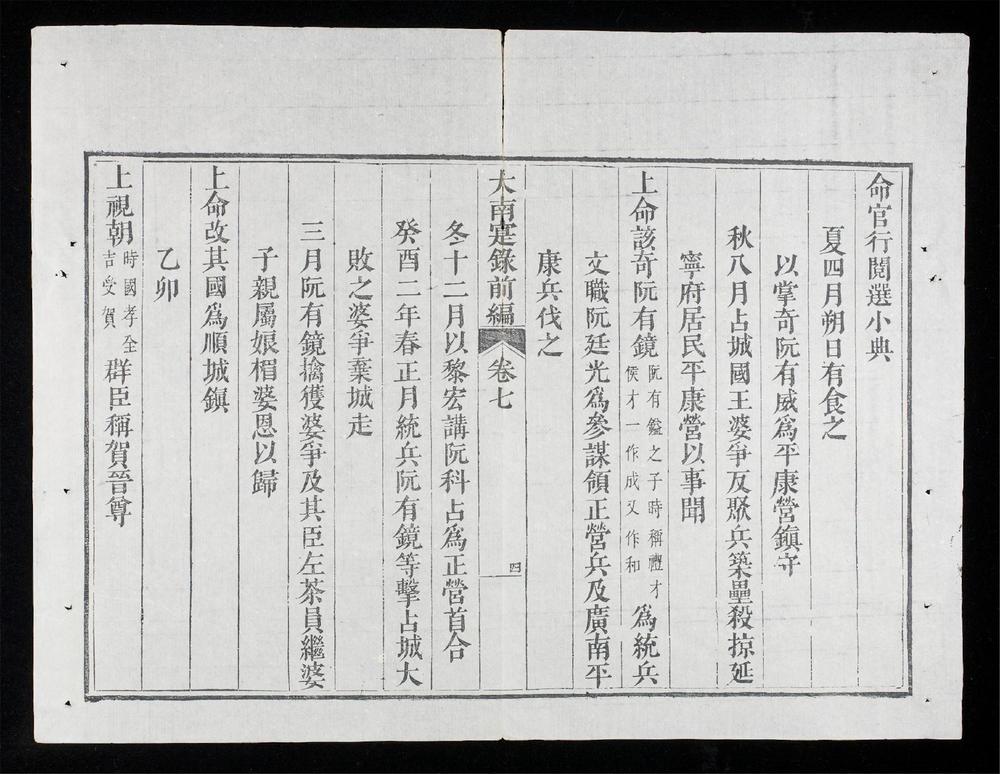 命官行閱選小典
夏四月朔日有食之
以掌奇阮有威爲平康營鎮守
秋八月占城國王婆爭反聚兵築壘殺掠延
寧府居民平康營以事聞
上命該奇阮有鏡阮有鎰之子時稱禮才侯才一作成又作和爲統兵
文職阮廷光爲參謀領正營兵及廣南平
康兵伐之
大南寔錄前編 卷七 四
冬十二月以黎宏講阮科占爲正營首合
癸酉二年春正月統兵阮有鏡等擊占城大
敗之婆爭棄城走
三月阮有鏡擒獲婆爭及其臣左茶員繼婆
子親屬娘楣婆恩以歸
上命改其國爲順城鎮
乙卯
上視朝時國孝全吉受賀群臣稱賀晉尊